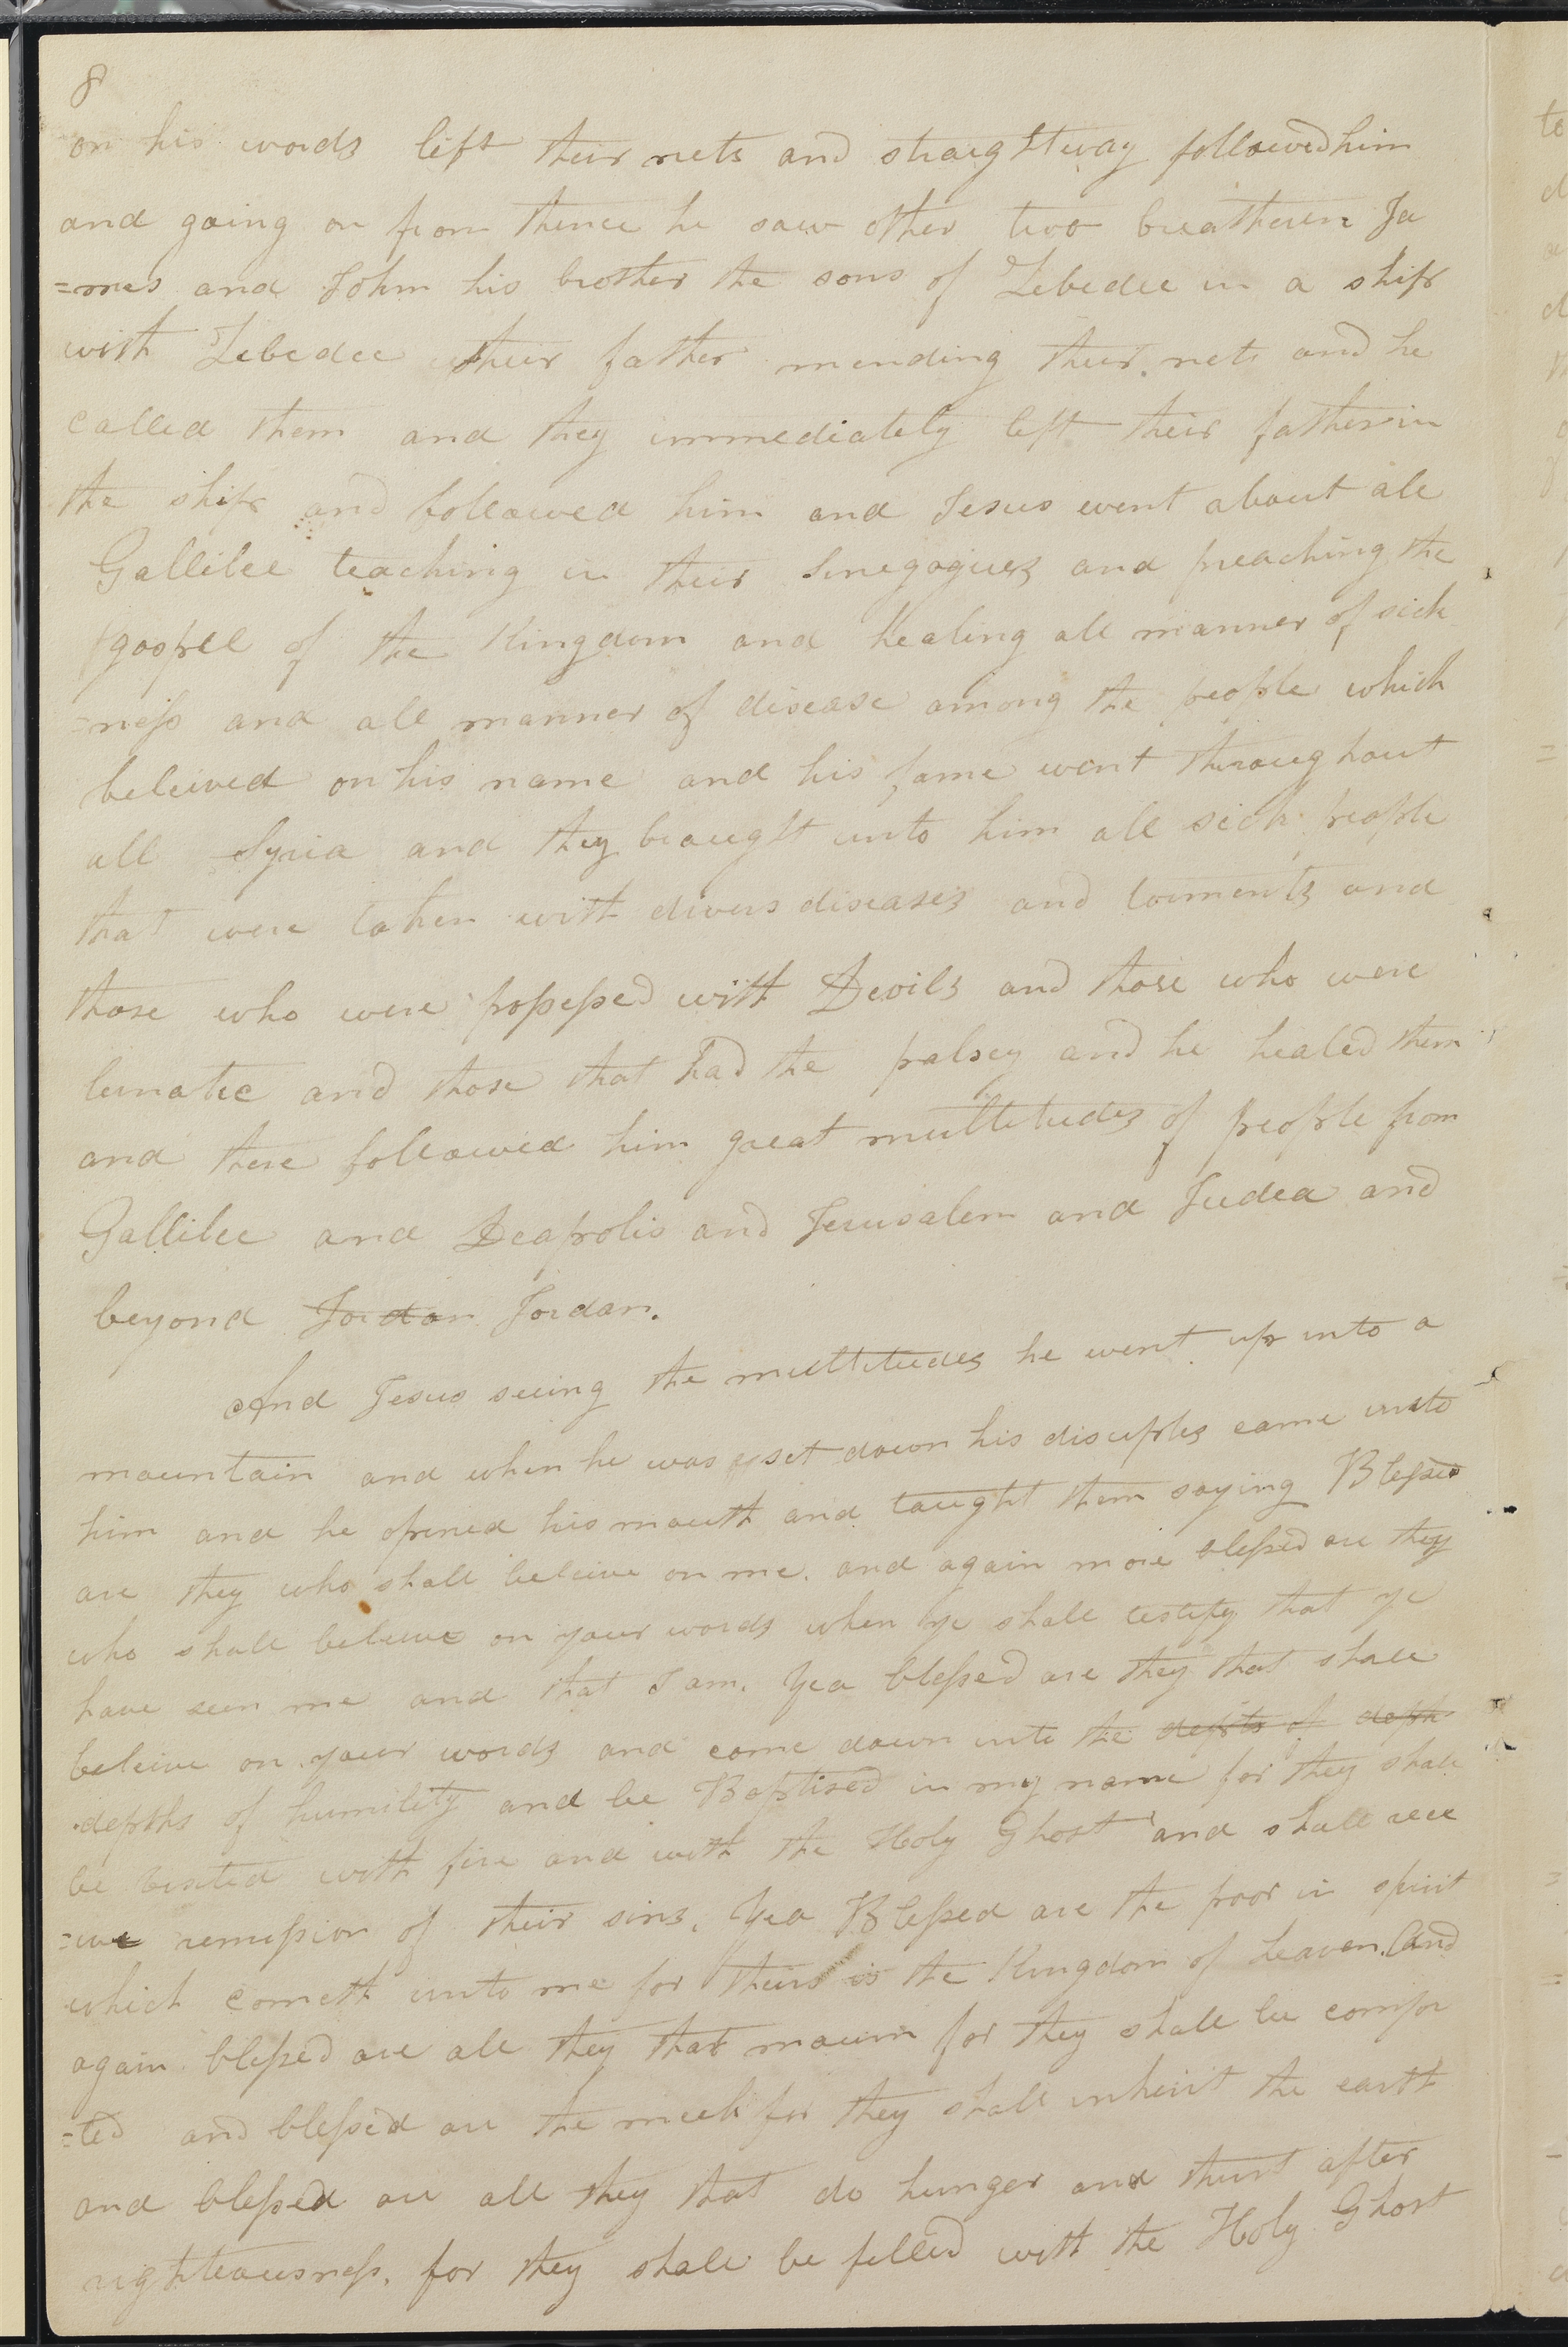 8
on his words left their nets and straightway followed him
and going on from thence he saw other two breatheren Ja
=mes and John his brother the sons of Zebedee in a ship
with Zebedee their father mending their nets and he
called them and they immediately left their father in
the ship and followed him and Jesus went about all
Gallilee teaching in their Sinegogues and preaching the
gospell of the Kingdom and healing all manner of sick
=ness and all manner of disease among the people which
beleived on his name and his fame went throughout
all Syria and they brought unto him all sick people
that were taken with divers diseases and torments and
those who were possessed with Devils and those who were
lunatic and those that had the palsey and he healed them
and there followed him great multitudes of people from
Gallilee and Decapolis and Jerusalem and Judea and
beyond Jordan Jordan.
And Jesus seeing the multitudes he went up into a
mountain and when he was set down his disciples came unto
him and he opened his mouth and taught them saying Blessed
are they who shall beleive on me. and again more blessed are they
who shall beleive on your words when ye shall testify that ye
have seen me and that I am. Yea blessed are they that shall
beleive on your words and come down into the depts of deph
depths of humility and be Baptised in my name for they shall
be visited with fire and with the Holy Ghost and shall rece
=ive remission of their sins. Yea Blessed are the poor in spirit
which cometh unto me for theirs is the Kingdom of heaven. And
again blessed are all they that mourn for they shall be comfor
=ted and blessed are the meek for they shall inherit the earth
and blessed are all they that do hunger and thirst after
righteousness. for they shall be filled with the Holy Ghost